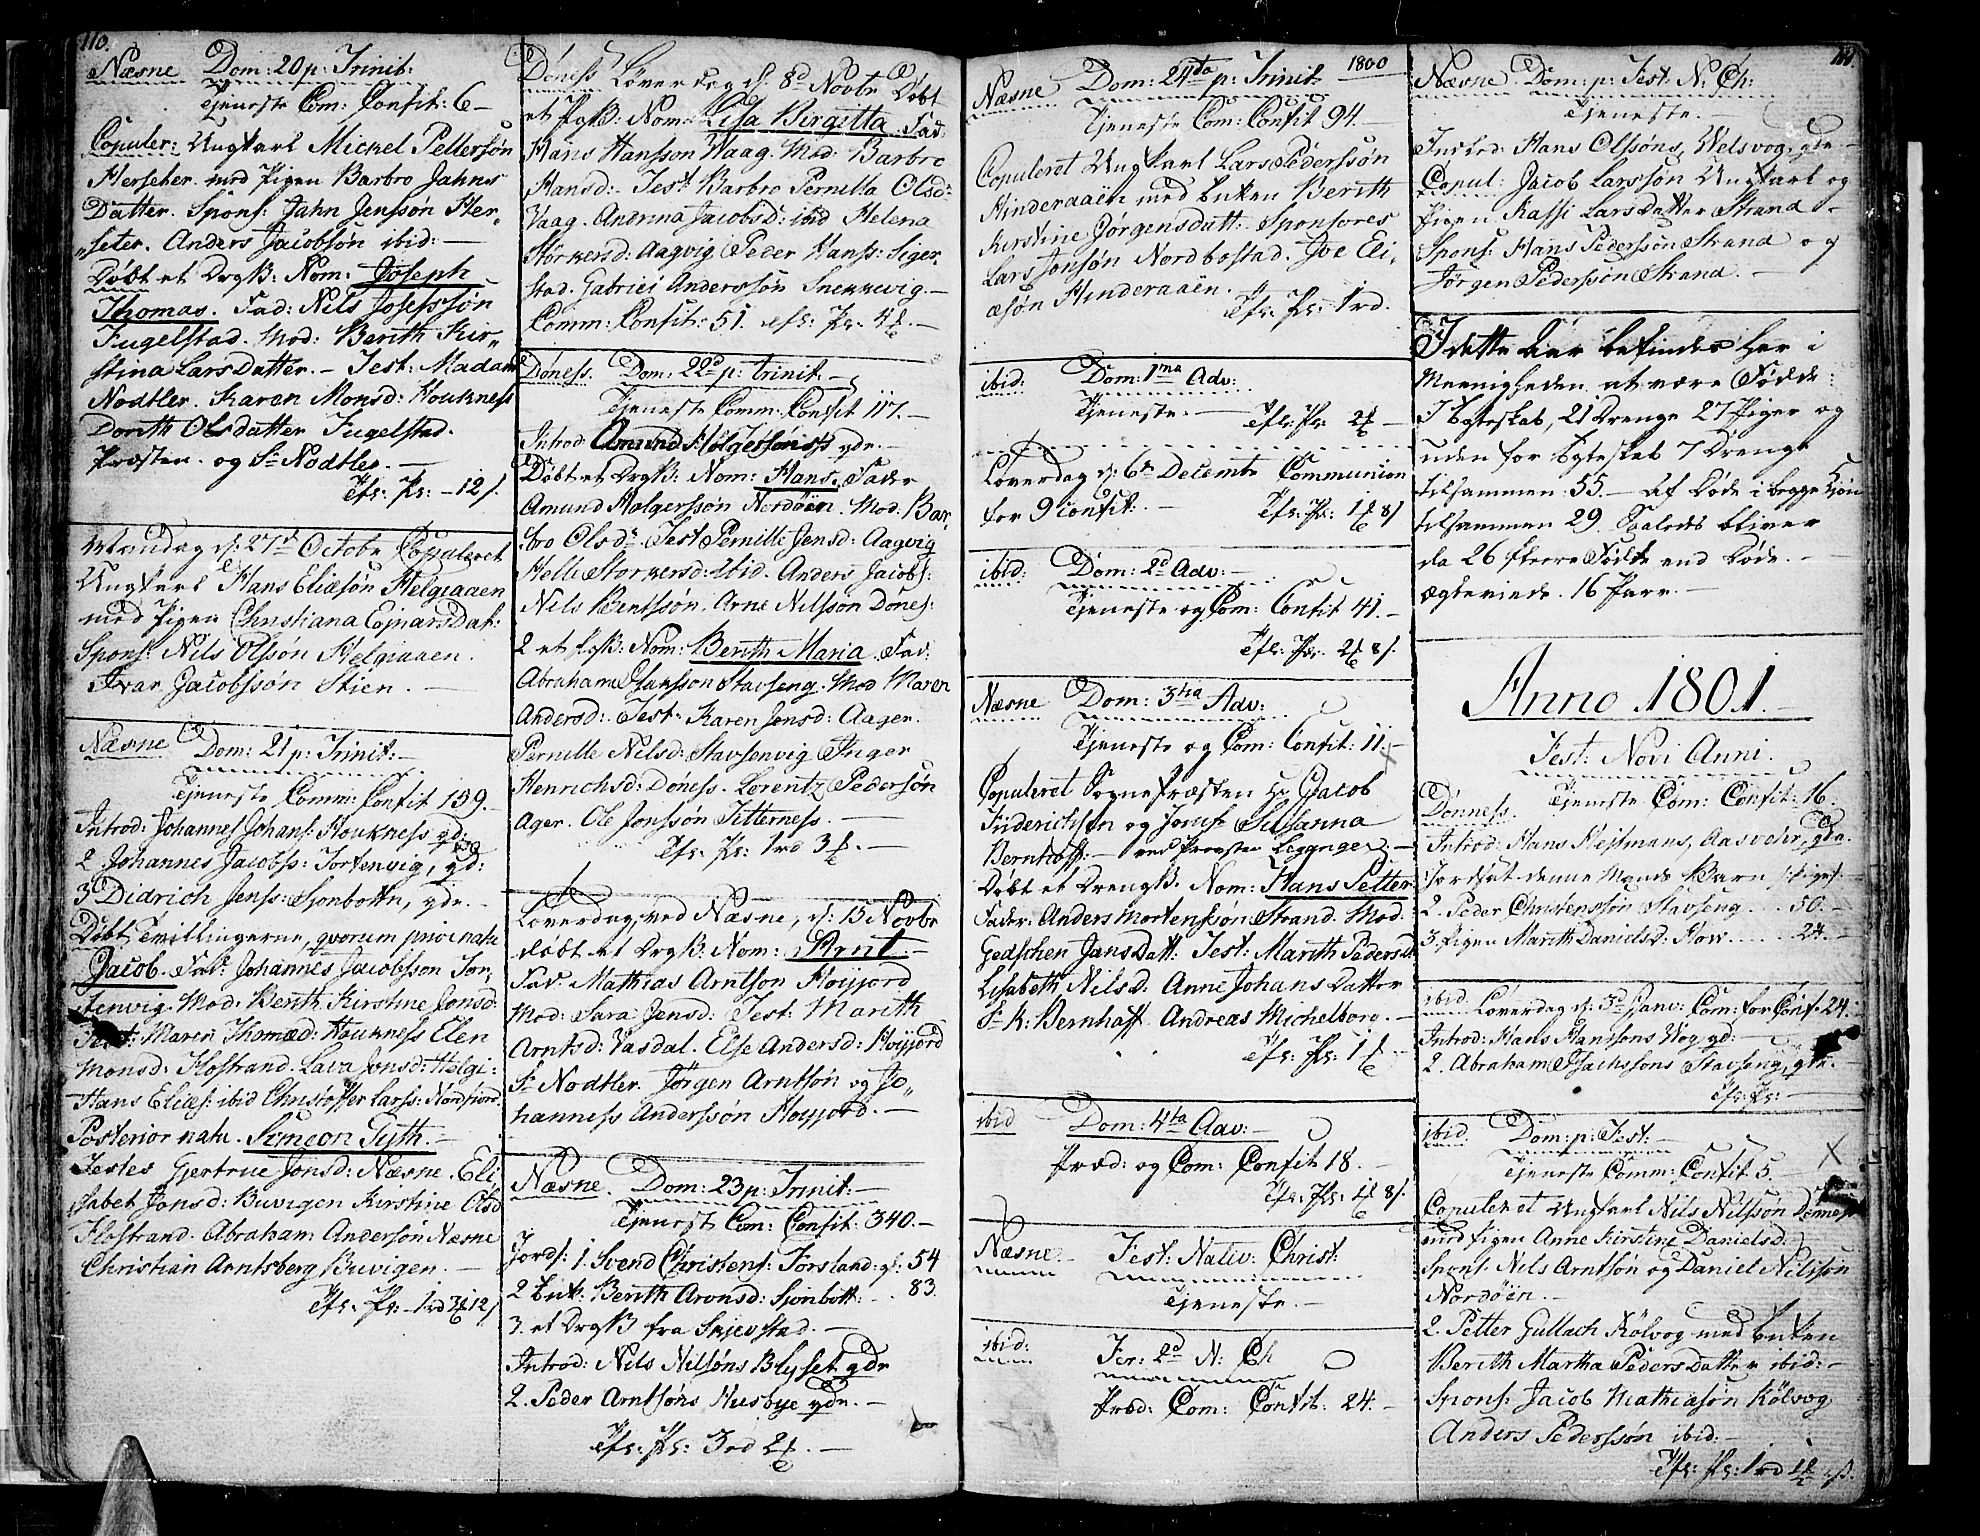 110.
Næsne Dom: 20 p: Trinit:
Tjeneste Com: Confit: 6 –
Copuler: Ungkarl Mickel Pettersøn
Herseter med Pigen Barbro Jahns
Datter. Spons: Jahn Jenssøn Her„
„seter. Anders Jacobsøn ibid: –
Døbt et DrgB: Nom: Joseph
Thomas. Fad: Nils Josefssøn
Fugelstad. Mod: Berith Kir„
stina Larsdatter. – Test: Madam
Nodtler. Karen Monsd: Houkness
Dorith Olsdatter Fugelstad.
Præsten og Sr Nodtler. –
Tfl: Ps: – 12 s.
Mandag d: 27de Octobr Copuleret
Ungkarl Hans Eliæsøn Helgaaen
med Pigen Christiana Ejnarsdat:
Spons: Nils Olssøn Helgaaen.
Ivar Jacobssøn Stien. –
Næsne Dom: 21 p: Trinit: –
Tjeneste Comm: Confit 159. –
Introd: Johannes Johans: Houkness gd:
2 Johannes Jacobs: Tortenvig, gd:
3 Didrich Jens: Sjonbotn, gdr. –
Døbt Tvillingerne, qvorum prior natu
Jacob. Fad: Johannes Jacobsson Tor„
tenvig. Mod: Berith Kirstine Jonsd:
Test: Maren Thomæd: Houkness Elen
Monsd: Flostrand. Lava Jonsd: Helgi:
Hans Eliæs: ibid Christoffer Larss: Nordfiord
Posterior natu. Simeon Tyth. –
Testes Gjertrue Jonsd: Næsne. Eli
sabet Jonsd: Buvigen Kirstine Olsd
Flostrand. Abraham Andersøn Næsne
Christian Arntsberg Buvigen. –
Tfl: Ps: – 1 rd 3 ℔ 12 s
Döness Løverdag d: 8de Novbr Døbt
et PgB: Nom: Lisa Birgitta. Fad:
Hans Hansson Waag. Mod: Barbro
Hansd: Test: Barbro Pernilla Olsd:
Vaag. Anenna Jacobsd: ibid Helena
Storkersd: Aagvig Peder Hanss: Siger„
stad. Gabriel Anderssön Snekkevig. –
Comm: Confit: 51. Tfl: Ps: 4 ℔. –
Döness. Dom: 22de p: trinit. –
Tjeneste Comm: Confit 117. –
Introd: Amund Holgersøns gdr. –
Døbt et DrgB: Nom: Hans. Fader
Amund Holgerssön Nordöen. Mod: Bar„
bro Olsdr. Test Pernille Jensd: Aagvig
Helli Storkersd: ibid. Anders Jacobs:
Nils Bentssøn. Arne Nilsson Dönes:
2 et PgB: Nom: Berith Maria. Fad:
Abraham Isaksson Stavseng. Mod Maren
Andersd: Test: Karen Jonsd: Aager.
Pernille Nilsd: Stavsenvig Inger
Henrichsd: Döness. Lorentz Pedersøn
Ager. Ole Jonssøn Titterness. –
Tfl: Ps: 1 rd 3 ℔. –
Løverdag, ved Næsne, d: 15 Novbr
døbt et DrgB: Nom: Arnt. –
Fad: Mathias Arntson Høyjord
Mod: Sara Jensd: Test: Marith
Arntsd: Vasdal. Else Andersd: Høyjord
Sr Nodtler. Jørgen Arntsøn og Jo„
hanness Anderssøn Høyjord. –
Næsne. Dom: 23 p: Trinit: –
Tjeneste Com: Confit: 340. –
Jords: 1. Svend Christens: Forsland: gl: 54
2 Enk: Berith Aronsd: Sjonbott: – . 83.
3. et DrgB fra Skjevstad. –
Introd: Nils Nilsøns Blysset gdr
2. Peder Arntsøns Husbye gdr. –
Tfl: Ps: 3 rd 2 ℔. –
1800
Næsne Dom: 24da p: Trinit
Tjeneste Com: Confit 94. –
Copuleret Ungkarl Lars Pederssön
Hinderaaen med Enken Berith
Kirstine Jørgensdatt: Sponsores
Lars Jonsøn Nordbostad. Joe Eli„
æsøn Hinderaaen.
Tfl: Ps: 1 rd.
ibid: Dom: 1ma Adv:
Tjeneste. – Tfl: Ps: 2 ℔ –
Løverdag d: 6te Decembr Communion
for 9 Confit: – Tfl: Ps: 1 ℔ 8 s
ibid: Dom: 2d Adv: –
Tjeneste og Com: Confit 41. –
Tfl: Ps: 2 ℔ 8 s.
Næsne Dom: 3tia Adv:
Tjeneste og Com: Confit: 11. –
Copuleret Sognepræsten Hr Jacob
Friderichsen og Jomfr Susanna
Bernhoff: – ved Provsten
Døbt et DrengB. Nom: Hans Petter
Fader: Anders Mortenssøn Strand. Mod:
Gedschen Jansdatt: Test: Marith Pedersd:
Lisabeth Nilsd. Anne Johans Datter
Sr K: Bernhoft Andreas Michelborg. –
Tfl: Ps: 1 ℔ –
ibid Dom: 4ta Adv: –
Præd: og Com: Confit 18. –
Tfl: Ps: 1 ℔ 8 s.
Næsne. Fest: Nativ: Christ:
Tjeneste. –
ibid: Fer: 2d N: Ch
Præd: Com: Confit: 24. –
111.
Næsne Dom: p: Fest: N: Ch:
Tjeneste. –
Introd: Hans Olssøns, Velsvog, gdr –
Copul: Jacob Larssøn Ungkarl og
Pigen Kassi Larsdatter Strand –
Spons: Hans Pederssøn Strand og
Jørgen Pederssøn Strand. –
I dette Aar befindes her i
Meenigheden at være Fødde:
I Egteskab, 21 Drenge 27 Piger og
uden for Egteskab 7 Drenge
tilsammen 55. – Af Døde i begge Kjøn
tilsammen 29. Saaledes bliver
da 26 fleere Fødde end Døde. –
Ægteviede. 16 Parr. –
Anno 1801. –
Fest: Novi Anni.
Dönness. Tjeneste Com: Confit: 16.
Introd: Hans Hejtmans, Aasvehr, gdr.
Jordsat denne Mands Barn
2. Peder Christenssøn Stavseng . . . 50. –
3. Pigen Marith Danielsd: Flow. . . . 24. –
ibid: Løverdag d: 3d Janv: Com: for Conf: 24.
Introd: Hans Hanssøns Wog gd: –
2. Abraham Isachssons Stavseng, gdr. –
Tfl: Ps: –
ibid. Dom: p: Fest: –
Tjeneste Comm: Confit 5. –
Copuleret Ungkarl Nils Nilssøn Dönness
med Pigen Anne Kirstine Danielsd:
Spons: Nils Arntsøn og Daniel Nilssøn
Nordöen. –
2. Petter Gullach Kölvog med Enken
Berith Martha Peders Datter ibid: –
Spons: Jacob Mathiasøn Kölvog
Anders Pederssøn ibid: –
Tfl: Ps: 1 rd 1 ℔